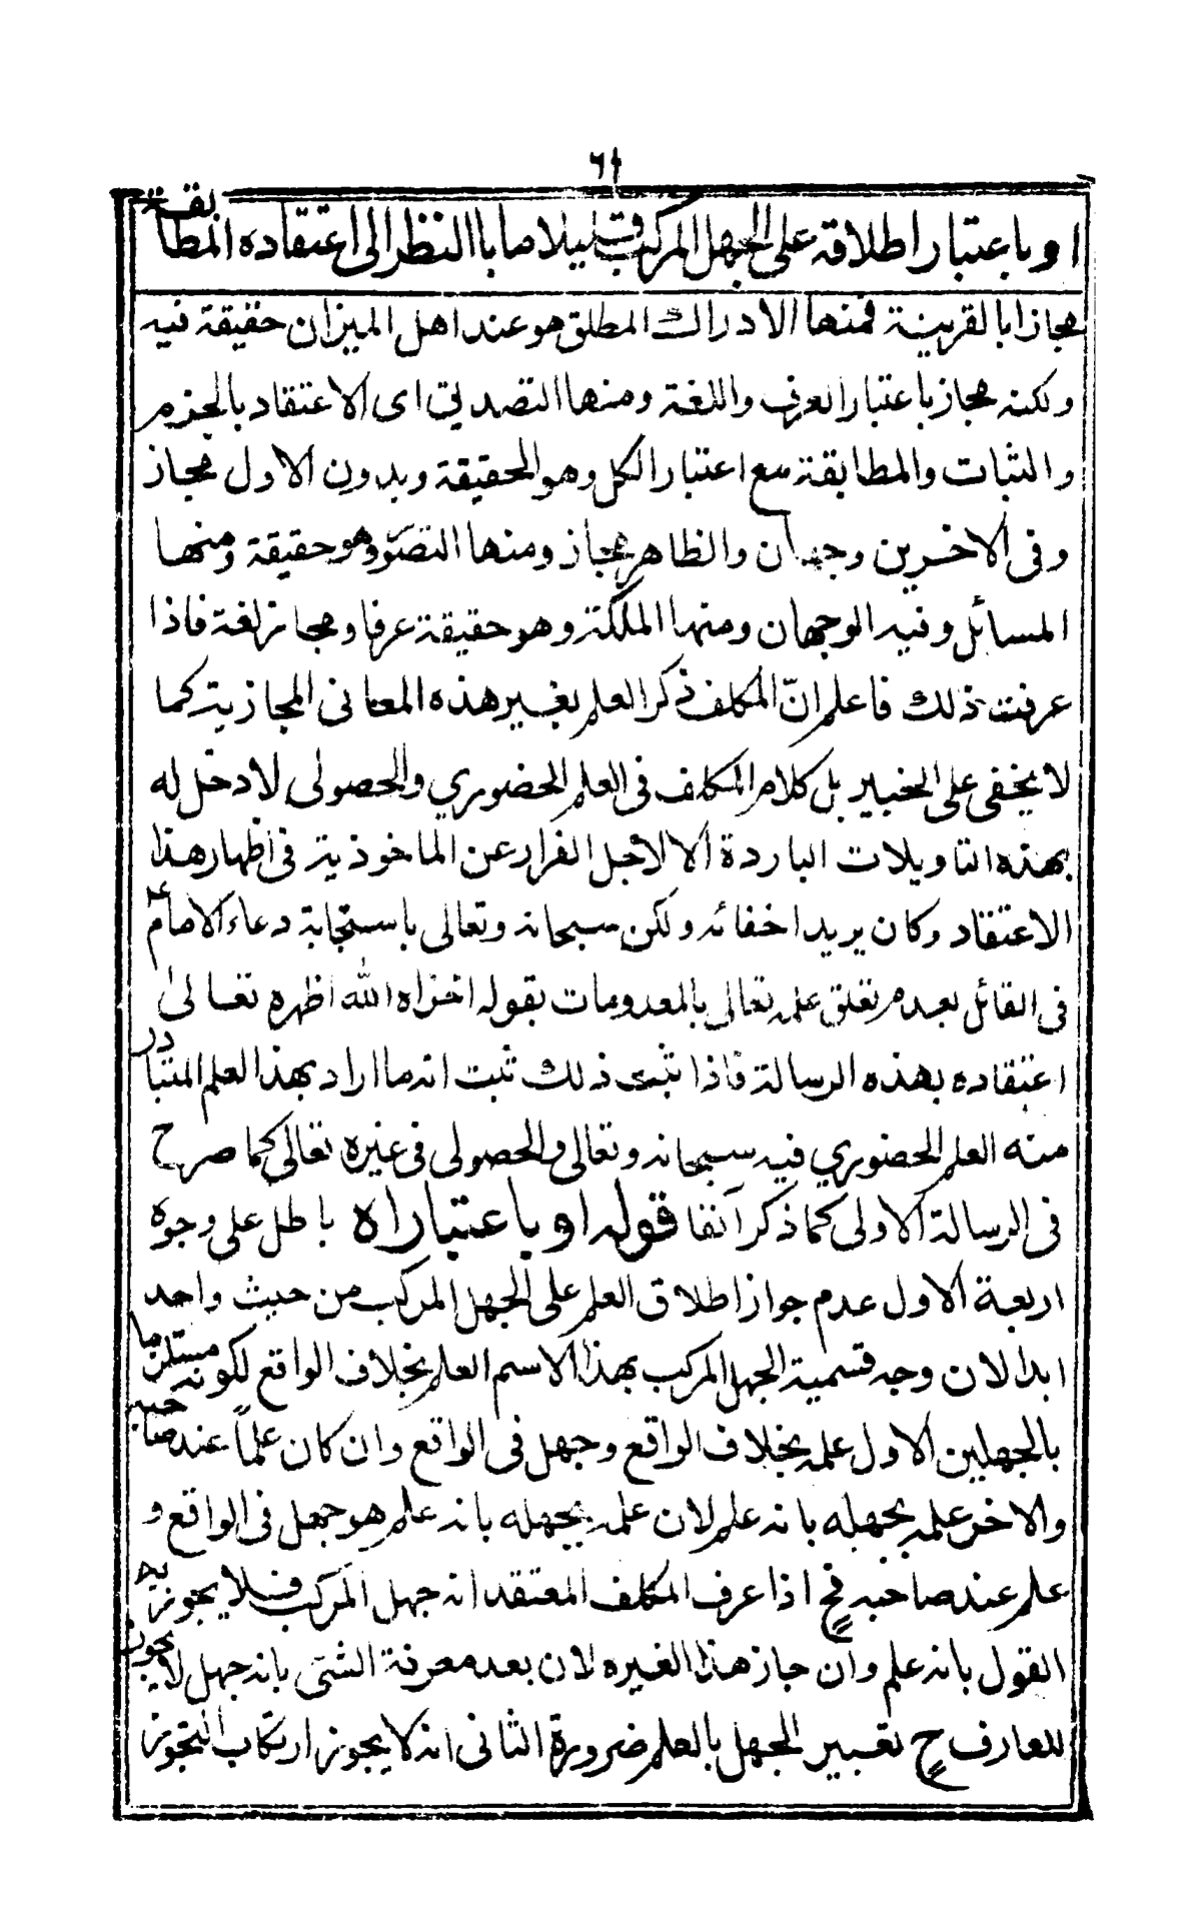 ٦١
او باعتبار اطلاقه على الجهل المركب قليلا ما بالنظر الى اعتقاده المطابقة
مجازا بالقرينة فمنها الادراك المطلق هو عند اهل الميزان حقيقة فيه
ولكنه مجاز باعتبار العرف واللغة ومنها التصديق اى الاعتقاد بالجزم
والثبات والمطابقة مع اعتبار الكل وهو الحقيقة وبدون الاول مجاز
وفى الاخرين وجهان والظاهر مجاز ومنها التصور وهو حقيقة ومنها
المسائل وفيه الوجهان ومنها الملكة وهو حقيقة عرفا ومجاز لغة فاذا
عرفت ذلك فاعلم انّ المكلف ذكر العلم بغير هذه المعانى المجازية كما
لا يخفى على الخبير بل كلام المكلف فى العلم الحضوري والحصولى لا دخل له
بهذه التاويلات الباردة الا لاجل الفرار عن الماخوذية فى اظهار هذا
الاعتقاد وكان يريد اخفائه ولكن سبحانه وتعالى باستجابة دعاء الامام ع
فى القائل بعدم تعلق علمه تعالى بالمعدومات بقوله اخزاه الله اظهره تعالى
اعتقاده بهذه الرسالة فاذا ثبت ذلك ثبت انه ما اراد بهذا العلم المتبادر
منه العلم الحضوري فيه سبحانه وتعالى والحصولى فى غيره تعالى كما صرح
فى الرسالة الاولى كما ذكر آنفا قوله او باعتبار اه باطل على وجوه
اربعة الاول عدم جواز اطلاق العلم على الجهل المركب من حيث واحد
ابدا لان وجه تسمية الجهل المركب بهذا الاسم العلم بخلاف الواقع لكونه مستلزما
بالجهلين الاول علمه بخلاف الواقع وجهل فى الواقع وان كان علماً عند صاحبه
والاخر علمه بجهله بانه علم لان علمه بجهله بانه علم هو جهل فى الواقع و
علم عند صاحبه فح اذا عرف المكلف المعتقد انه جهل المركب فلا يجوز
القول بانه علم وان جاز هذا لغيره لان بعد معرفة الشئ بانه جهل لا يجوز
للعارف ح تعبير الجهل بالعلم ضرورة الثانى انه لا يجوز ارتكاب التجوز